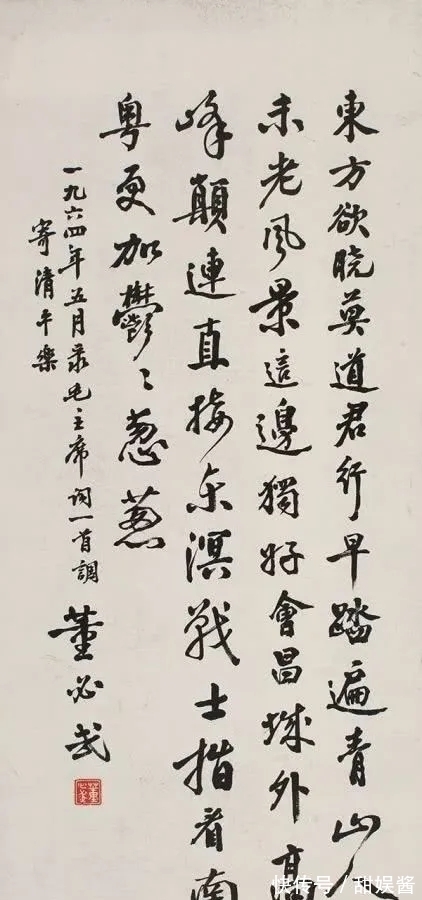 東方欲晓莫道君行早踏遍青山人
未老風景這邊獨好會昌城外高
峰顛連直接东溟戰士指看南
粤更加鬱〻葱葱
一九六四年五月录毛主席词一首調
寄清平樂
董必武
快传号/甜娱酱